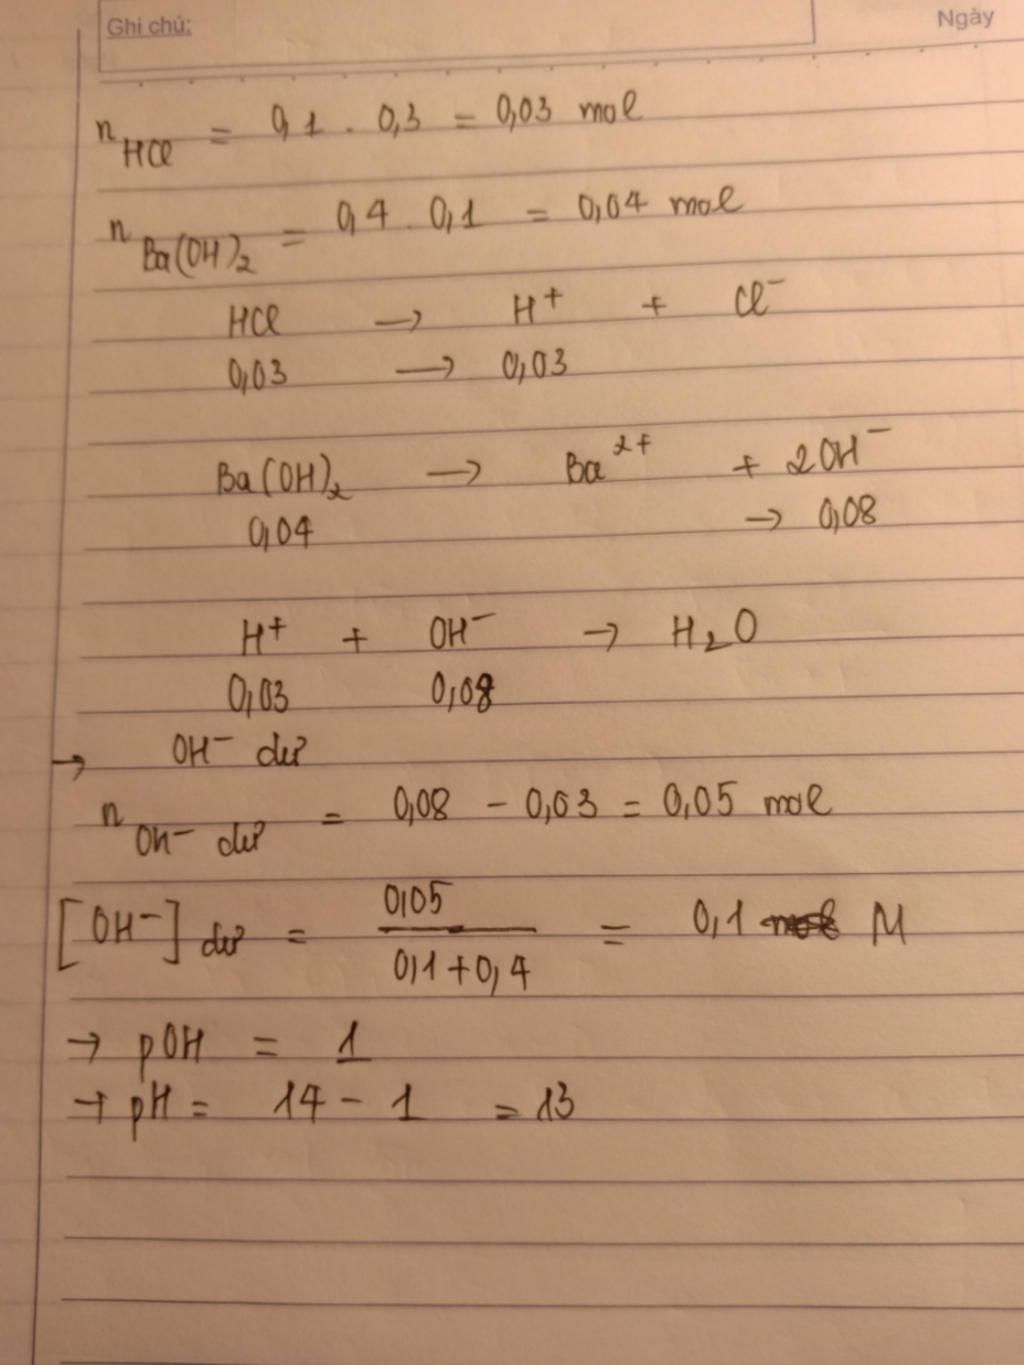 Ghi chú:
Ngày
n HCl = 0,1 . 0,3 = 0,03 mol
n Ba(OH)₂ = 0,4 . 0,1 = 0,04 mol
HCl → H⁺ + Cl⁻
0,03 → 0,03
Ba(OH)₂ → Ba²⁺ + 2OH⁻
0,04 → 0,08
H⁺ + OH⁻ → H₂O
0,03 0,08
→ OH⁻ dư
n OH⁻ dư = 0,08 - 0,03 = 0,05 mol
[OH⁻] dư = 0,05 / 0,1+0,4 = 0,1 M
→ pOH = 1
→ pH = 14 - 1 = 13